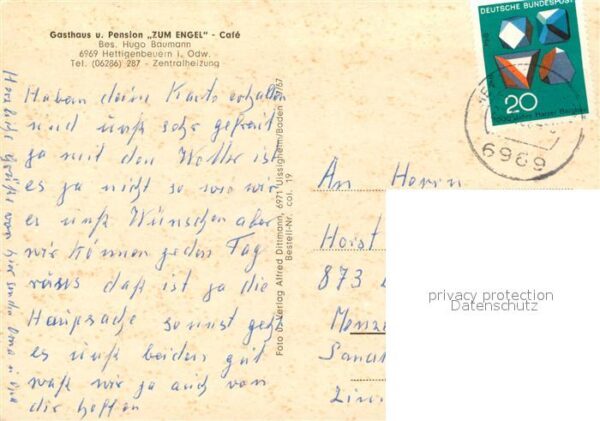 Gasthaus u. Pension „ZUM ENGEL" - Café
Bes. Hugo Baumann
6969 Hettigenbeuern i. Odw.
Tel. (06286) 287 - Zentralheizung
Haben deine Karte erhalten
und unß sehr gefreut
ja mit den Wetter ist
es ja nicht so wie wir
es unß Wünschen aber
wir können jeden Tag
raus daß ist ja die
Haupsache sonnst geht
es unß beiden gut
waß wir ja auch von
dir hoffen
Herzliche Grüße von hier senden Oma u Opa
Foto u. Verlag Alfred Dittmann, 6971 Uissigheim/Baden 9767
Bestell-Nr. col. 19
DEUTSCHE BUNDESPOST
20
6969
An Herrn
Horst
873
privacy protection
Datenschutz